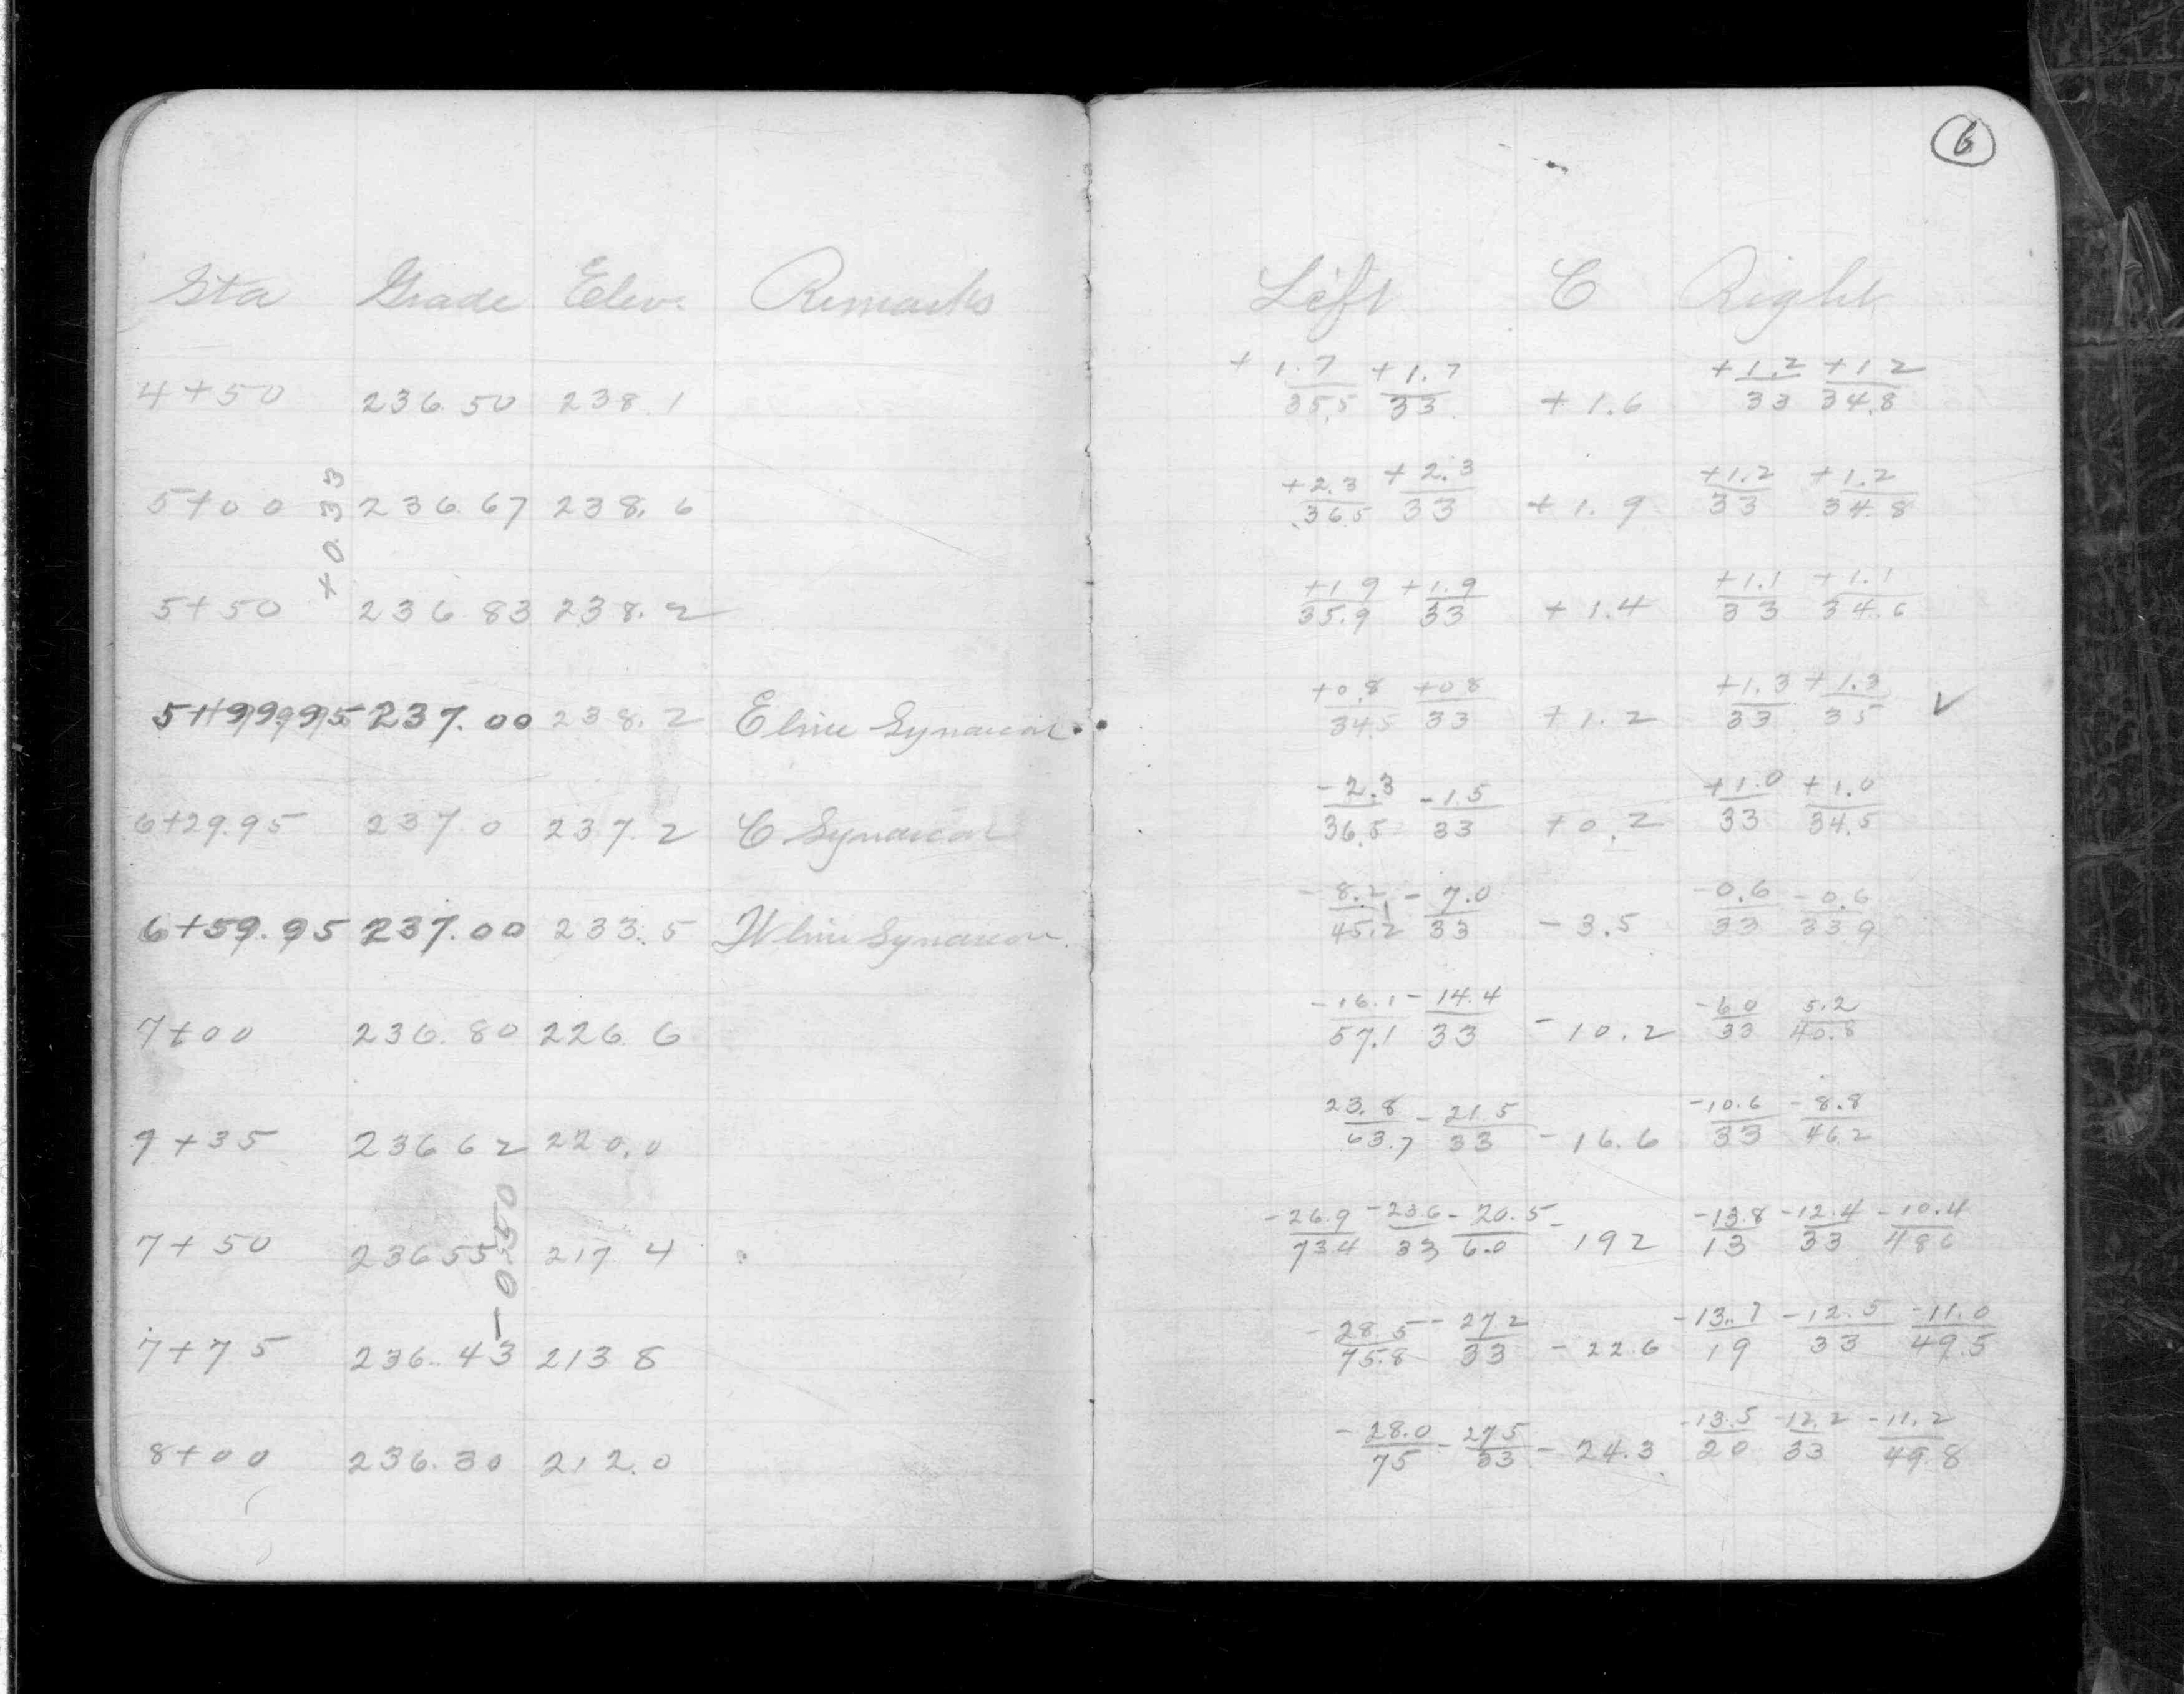 6
Sta Grade Elev. Remarks Left C Right
+1.7/35.5 +1.7/33 +1.6 +1.2/33 +1.2/34.8
4+50 236.50 238.1
+0.33
5+00 236.67 238.6 +2.3/36.5 +2.3/33 +1.9 +1.2/33 +1.2/34.8
5+50 236.83 238.2 +1.9/35.9 +1.9/33 +1.4 +1.1/33 +1.1/34.6
5+99.95 237.00 238.2 E line +0.8/34.5 +0.8/33 +1.2 +1.3/33 +1.3/35 ✓
6+29.95 237.0 237.2 C -2.3/36.5 -1.5/33 +0.2 +1.0/33 +1.0/34.5
6+59.95 237.00 233.5 W line -8.2/45.2 -7.0/33 -3.5 -0.6/33 -0.6/33.9
7+00 236.80 226.6 -16.1/57.1 -14.4/33 -10.2 -6.0/33 5.2/40.8
9+35 236.62 220.0 23.8/63.7 -21.5/33 -16.6 -10.6/33 -8.8/46.2
-0.550
7+50 236.55 217.4 -26.9/73.4 -23.6/33 -20.5/6.0 -19.2 -13.8/13 -12.4/33 -10.4/48.6
7+75 236.43 213.8 -28.5/75.8 -27.2/33 -22.6 -13.7/19 -12.5/33 -11.0/49.5
8+00 236.30 212.0 -28.0/75 -27.5/33 -24.3 -13.5/20 -12.2/33 -11.2/49.8